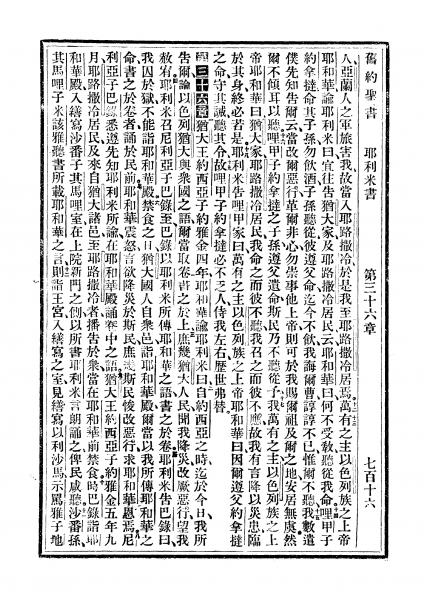 舊約聖書 耶利米書 第三十六章 七百十六
人、亞蘭人之軍旅害我、故當入耶路撒冷、於是我至耶路撒冷居焉、萬有之主、以色列族之上帝
耶和華諭耶利米曰、宜往告猶大家、及耶路撒冷居民云、耶和華曰、何不受敎、聽從我命、哩甲子
約拿撻命其子孫勿飲酒、子孫聽從、彼遵父命、迄今不飲、我誨爾曹、諄諄不已、惟爾不聽、我數遣
僕先知告爾云、當改爾惡行、革爾非心、勿崇事他上帝、則可於我賜爾祖及爾之地、安居無虞、然
爾不傾耳以聽、哩甲子約拿撻之子孫、遵父遺命、斯民乃不聽從予、我萬有之主、以色列族之上
帝耶和華曰、猶大家、耶路撒冷居民、我命之而彼不聽、我召之而彼不應、故我有言、降以災患、臨
於其身、終必若是、耶利米告哩甲家曰、萬有之主、以色列族之上帝耶和華曰、因爾遵父約拿撻
之命、守其誡、聽其令、故哩甲子約拿撻必不乏人、侍我左右、歷世弗替、
第三十六章 猶大王約西亞子約雅金四年、耶和華諭耶利米曰、自約西亞之時、迄於今日、我所
告爾、論以色列猶大與衆國之語、爾當取卷、書之於上、庶幾猶大人民、聞我降災、改厥惡行、望我
赦宥、耶利米召尼利亞子巴錄至、巴錄以耶利米所傳耶和華之語、書之於卷、耶利米告巴錄曰、
我囚於獄、不能詣耶和華殿、禁食之日、猶大國人、自衆邑詣耶和華殿、爾當以我所傳耶和華之
命、書之於卷者、誦於民前、耶和華震怒、言欲降災於斯民、庶幾斯民悛改惡行、求耶和華恩焉、尼
利亞子巴錄、悉遵先知耶利米所諭、在耶和華殿、誦卷中之語、猶大王約西亞子約雅金五年九
月、耶路撒冷居民、及來自猶大諸邑、至耶路撒冷者、播告於衆、當在耶和華前禁食、時巴錄詣耶
和華殿、入繕寫沙番子其馬哩室、在上院新門之側、以所書耶利米言、朗誦之、俾民咸聽、沙番孫
其馬哩子米該雅、聽書所載耶和華之言、則詣王宮、入繕寫之室、見繕寫以利沙馬、示罵雅子地